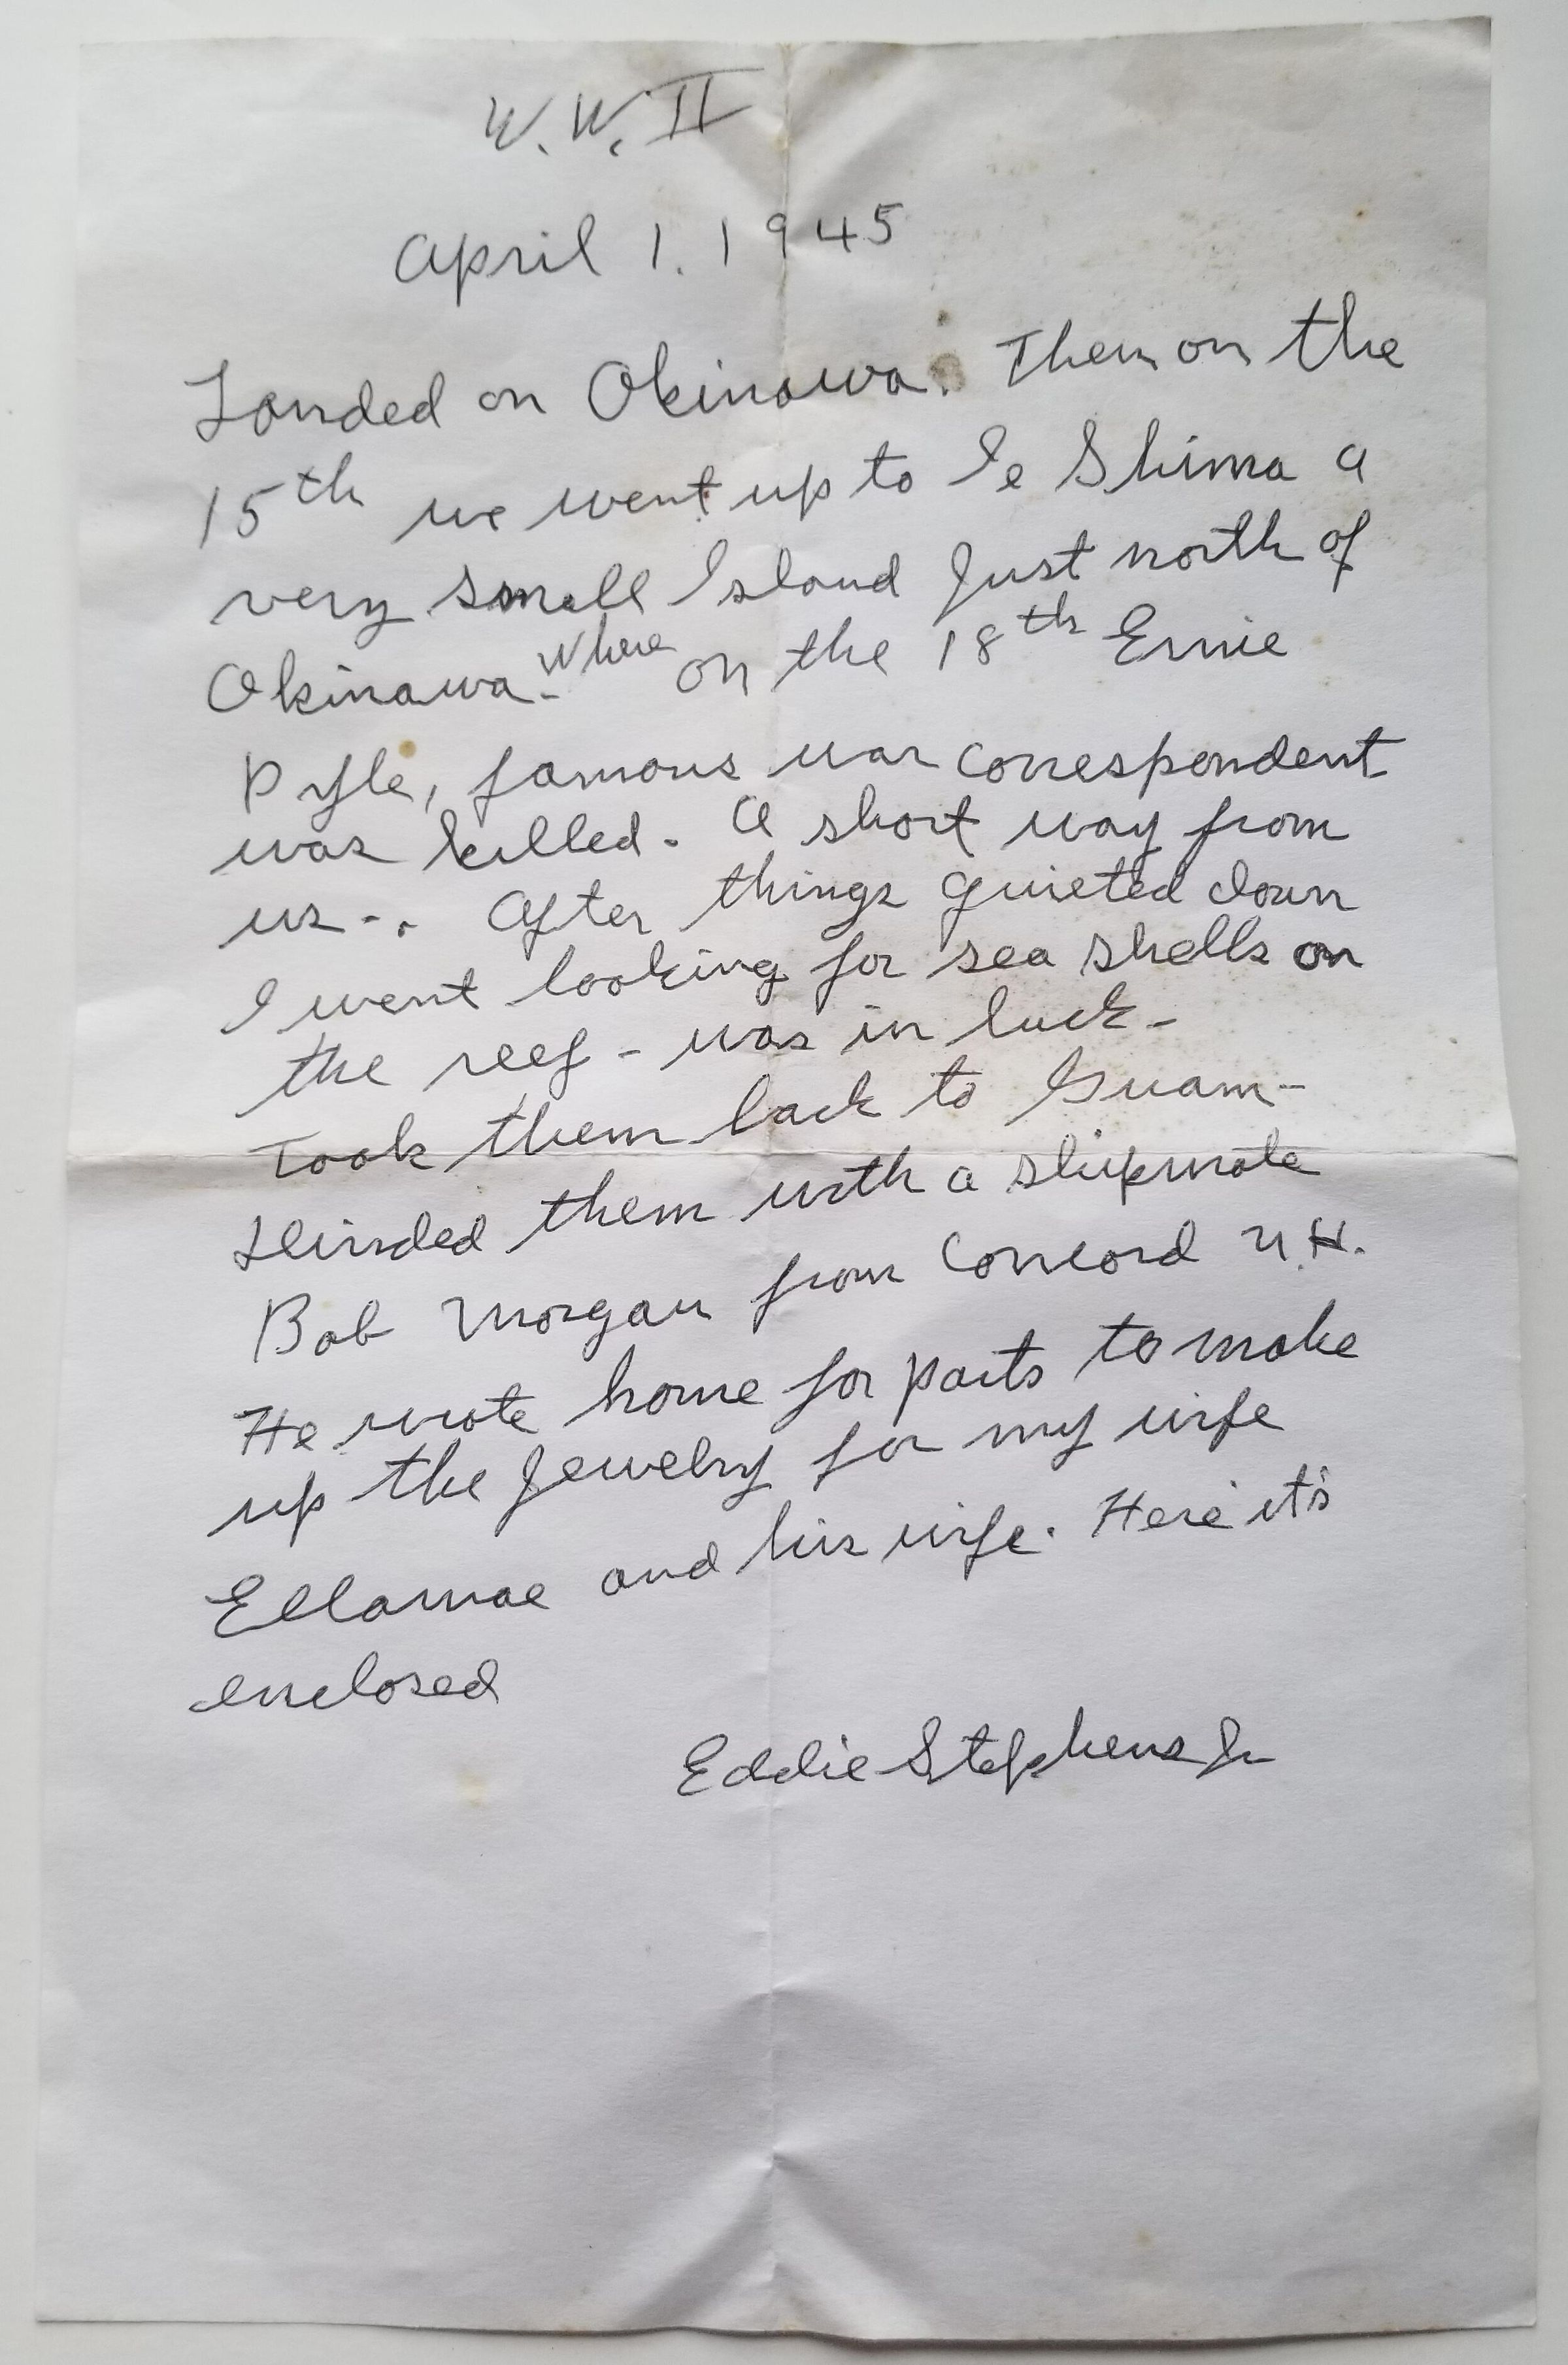 W.W. II
April 1. 1945
Landed on Okinawa. Then on the
15th we went up to Ie Shima a
very small Island Just north of
Okinawa - Where on the 18th Ernie
Pyle, famous war correspondent
was killed. A short way from
us-. After things quieted down
I went looking for sea shells on
the reef - was in luck -
Took them back to Guam -
them with a shipmate
Bob Morgan from Concord N.H.
He wrote home for parts to make
up the Jewelry for my wife
Ellamae and his wife. Here it's
enclosed
Eddie Stephens Jr